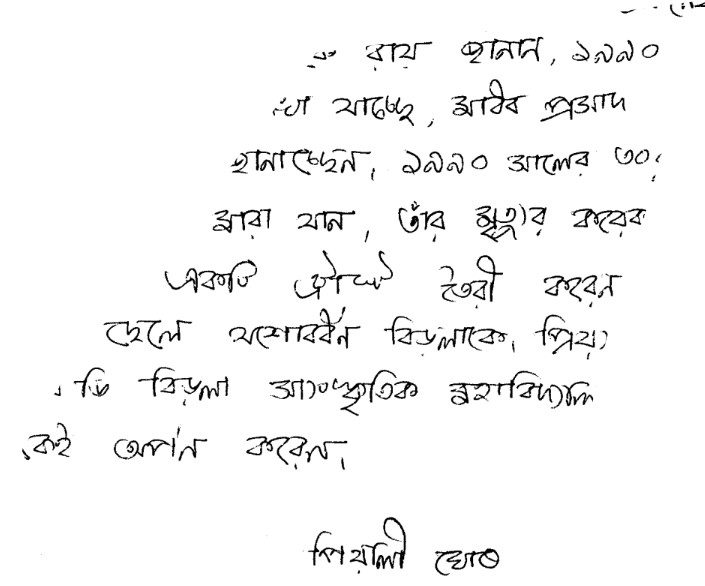 রায় হানান, ১৯৯০
যাচ্ছে, মাধব প্রসাদ
হানাচ্ছেন, ১৯৯০ সালের ৩০
মারা যান, তাঁর মৃত্যুর কয়েক
একটি ট্রাস্ট তৈরী করেন
ছেলে যশোবর্ধন বিড়লাকে, প্রিয়
ভি বিড়লা সাংস্কৃতিক মহাবিদ্যাল
কেই অর্পন করেন,
পিয়ালী ঘোষ